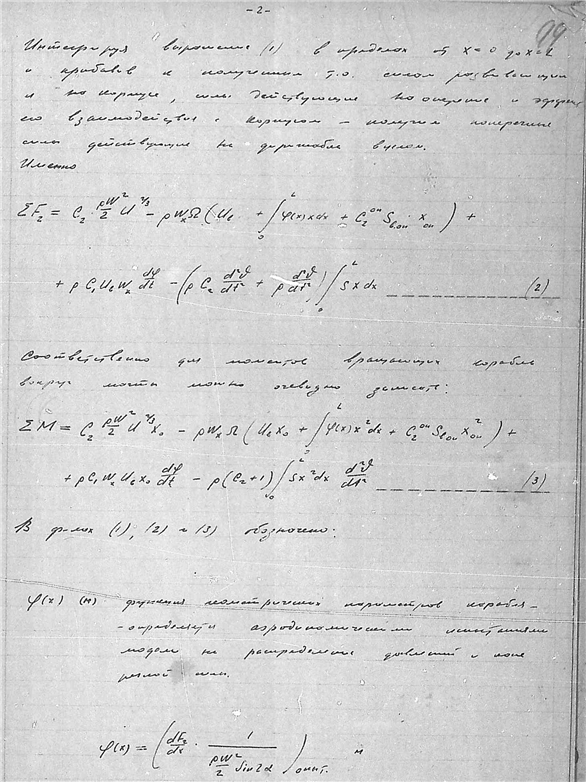 -2-
99
Интегрируя выражение (1) в пределах от x=0 до x=L
и прибавив к полученным т.о. силам развивающим
на корпусе, силы действующие на оперение и эффект
его взаимодействия с корпусом – получим поперечные
силы действующие на дирижабль в целом.
Именно
ΣF₂ = C₂ ρW²/2 U^(2/3) − ρWₓΩ (Uₑ + ∫₀ᴸ φ(x) x dx + C₂ᵒⁿ S в.оп · x оп) +
+ ρ C₁ Uₑ Wₓ dφ/dt − (ρ C₂ d²ϑ/dt² + ρ d²ϑ/dt²) ∫₀ᴸ S x dx (2)
Соответственно для моментов вращающих корабль
вокруг можно очевидно записать:
ΣM = C₂ ρW²/2 U^(2/3) x₀ − ρWₓΩ (Uₑ x₀ + ∫₀ᴸ φ(x) x² dx + C₂ᵒⁿ S в.оп x²оп) +
+ ρ C₁ Wₓ Uₑ x₀ dφ/dt − ρ (C₂+1) ∫₀ᴸ S x² dx d²ϑ/dt² (3)
В ф-лах (1), (2) и (3) обозначено:
φ(x) (м) функция геометрических параметров корабля –
– определяется аэродинамическими испытаниями
модели на распределение давлений и поперечной сил.
φ(x) = (dF₂/dx · 1/(ρW²/2 Sin 2α)) опыт. м